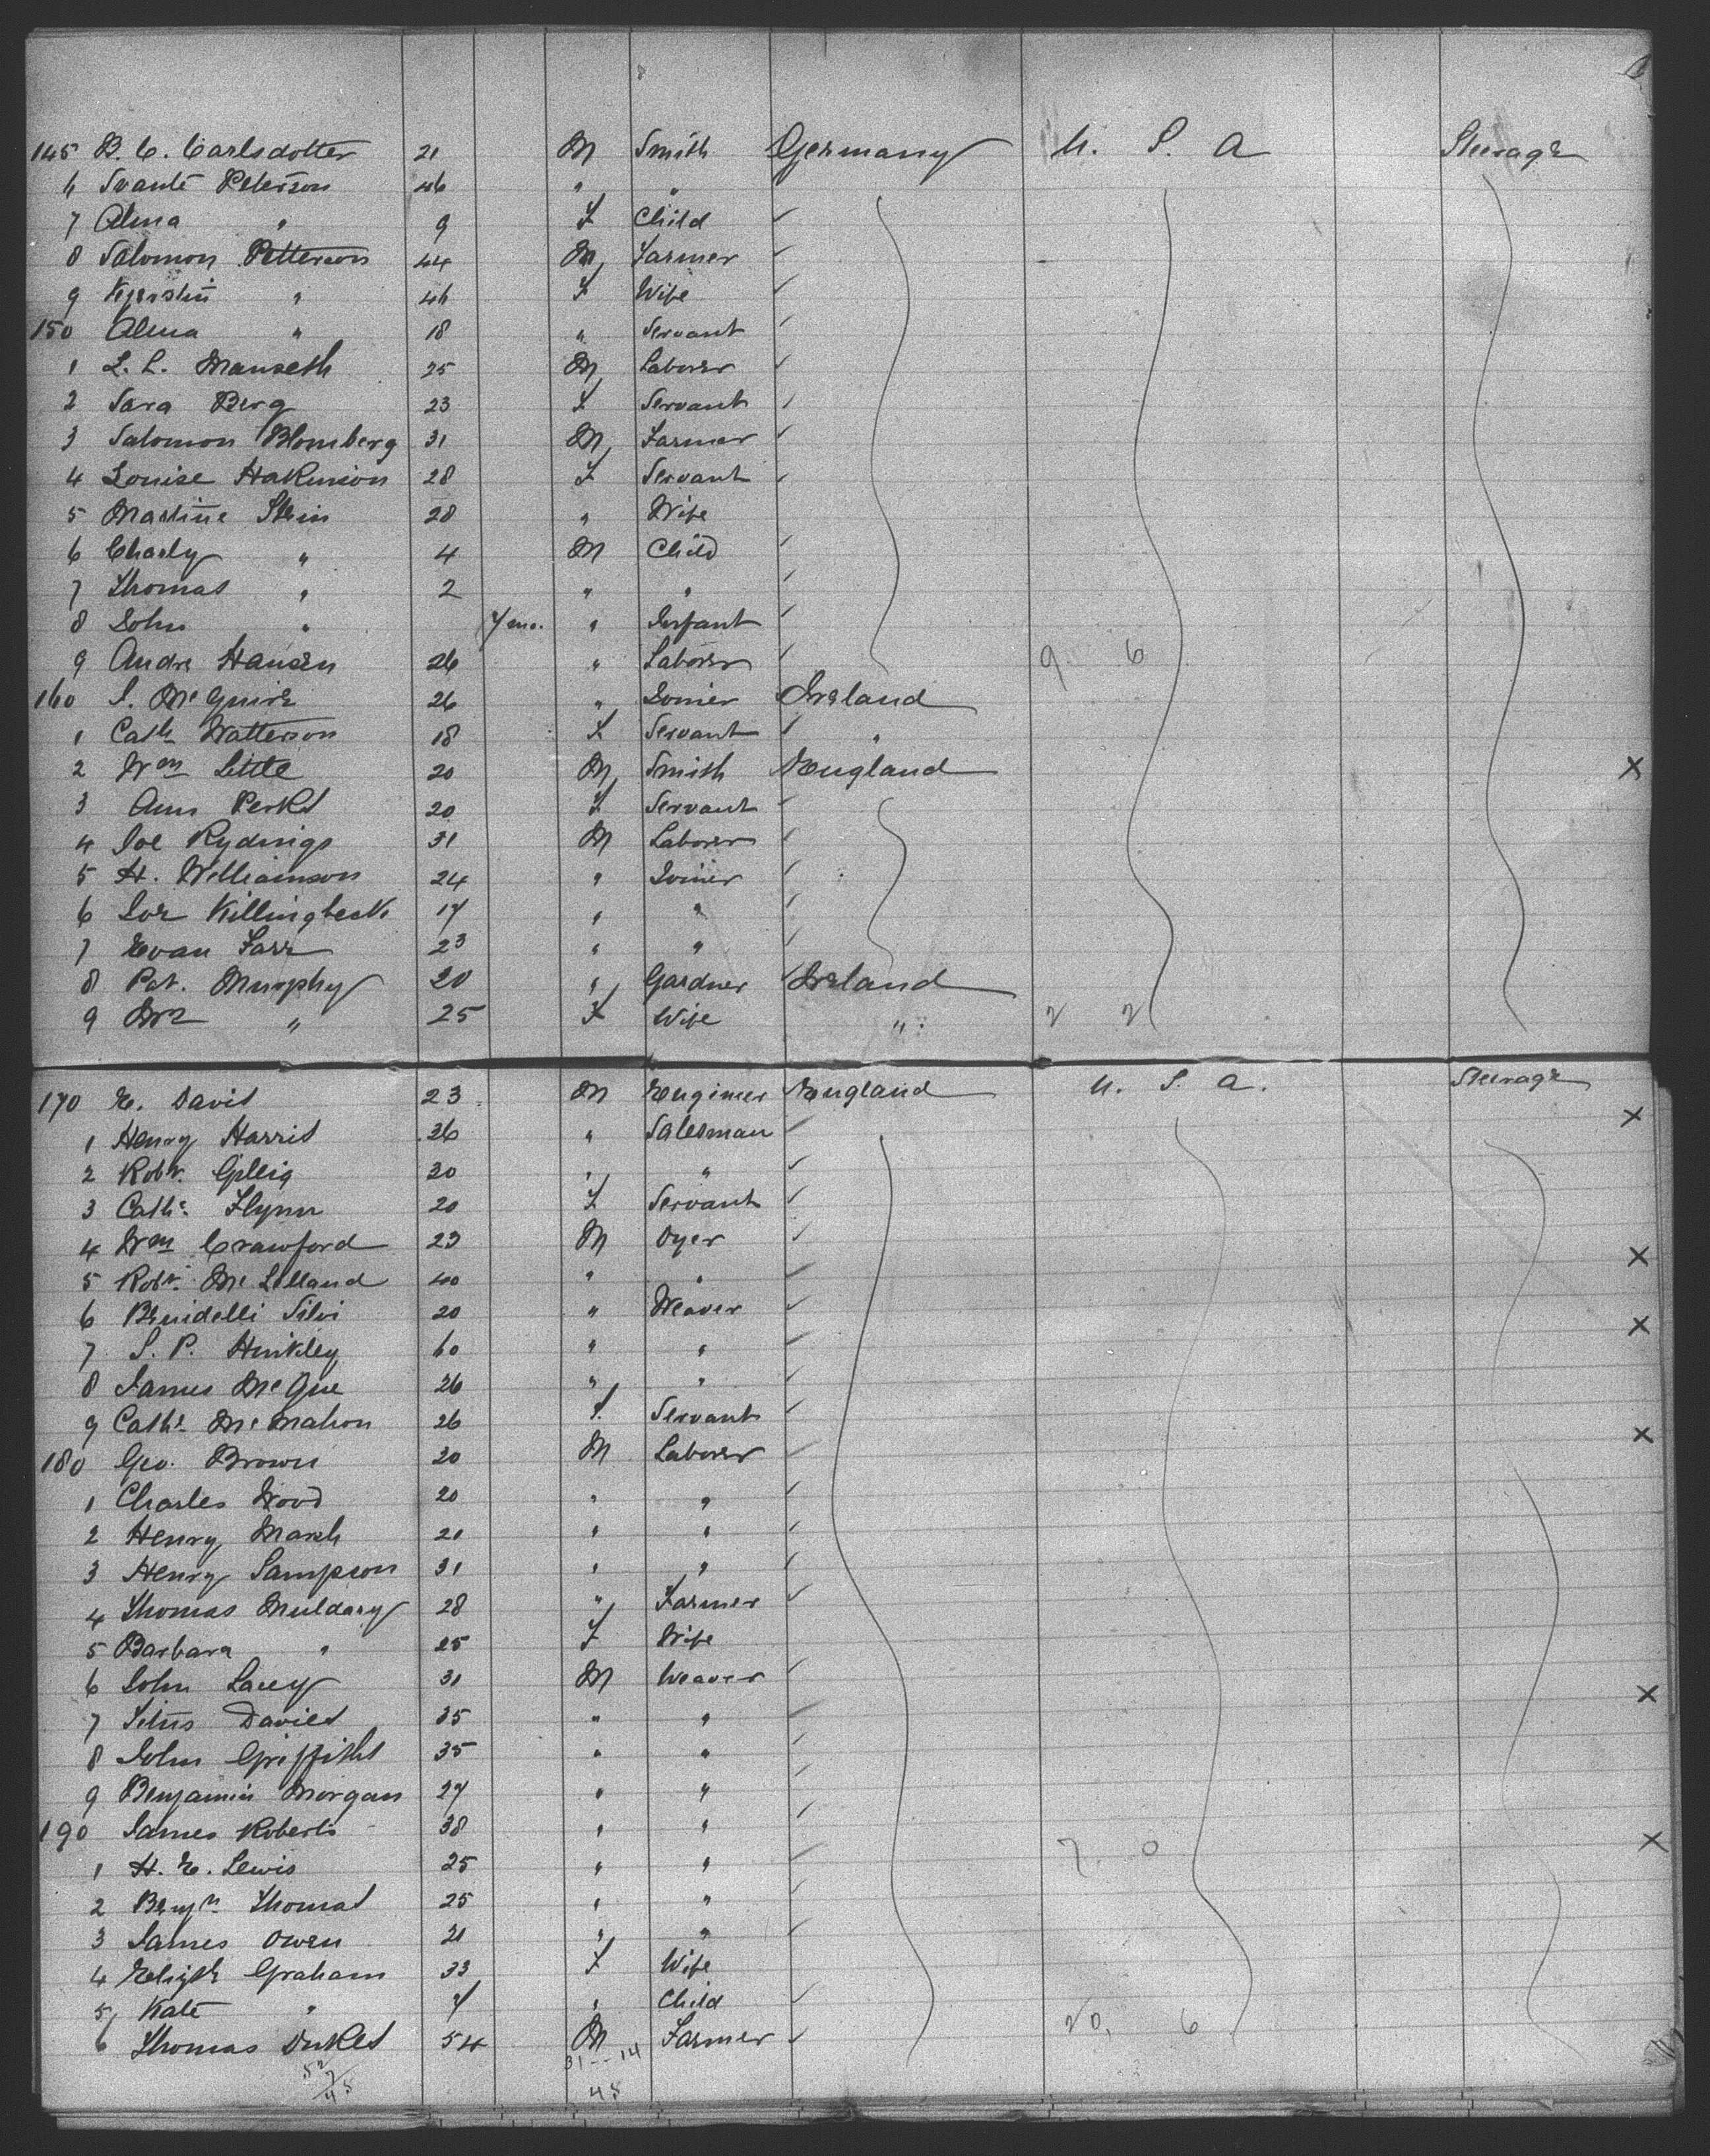 145 B. C. Carlsdotter 21 M Smith Germany U. S. A Steerage
6 Svante Peterson 46 " "
7 Alma " 9 F Child ✓
8 Salomon Petterson 44 M Farmer ✓
9 Kjerstin " 46 F Wife ✓
150 Alma " 18 " Servant ✓
1 L. L. Manseth 25 M Laborer ✓
2 Sara Berg 23 F Servant ✓
3 Salomon Blomberg 31 M Farmer ✓
4 Louise Hakinson 28 F Servant ✓
5 Martine Stein 28 " Wife
6 Charly " 4 M Child ✓
7 Thomas " 2 " " ✓
8 John " 7 mo. " Infant ✓
9 Andre Hansen 26 " Laborer ✓ 9 6
160 S. McGuire 26 " Joiner Ireland
1 Cath Watterson 18 F Servant ✓ "
2 Wm Little 20 M Smith England X
3 Ann Perks 20 F Servant ✓
4 Joe Rydings 31 M Laborer ✓
5 H. Williamson 24 " Joiner ✓
6 Joe Killingbeck 17 " " ✓
7 Evan Farr 23 " " ✓
8 Pat. Murphy 20 " Gardner ✓ Ireland
9 Mrs " 25 F Wife " 2 2
170 E. Davis 23 M Engineer England U. S. A. Steerage X
1 Henry Harris 26 " Salesman ✓
2 Robt. Gillig 30 " " ✓
3 Cathe Flynn 20 F Servant ✓
4 Wm Crawford 23 M Dyer ✓ X
5 Robt. McLelland 40 " " ✓
6 Benidelli Silvi 20 " Weaver ✓ X
7 S. P. Hinkley 60 " " ✓
8 James McGue 26 " " ✓
9 Cathe McMahon 26 F. Servant ✓ X
180 Geo. Brown 20 M Laborer ✓
1 Charles Wood 20 " " ✓
2 Henry Marsh 21 " " ✓
3 Henry Sampson 31 " " ✓
4 Thomas Muldary 28 " Farmer ✓
5 Barbara " 25 F Wife
6 John Lacey 31 M Weaver ✓ X
7 Titus Davies 35 " " ✓
8 John Griffiths 35 " " ✓
9 Benjamin Morgan 27 " " ✓
190 James Roberts 38 " " ✓ 7. 0 X
1 H. E. Lewis 25 " " ✓
2 Benjn Thomas 25 " " ✓
3 James Owen 21 " " ✓
4 Elizth Graham 33 F Wife
5 Kate " 7 " Child ✓
6 Thomas Dukes 54 M Farmer ✓ 20, 6
31--14
45